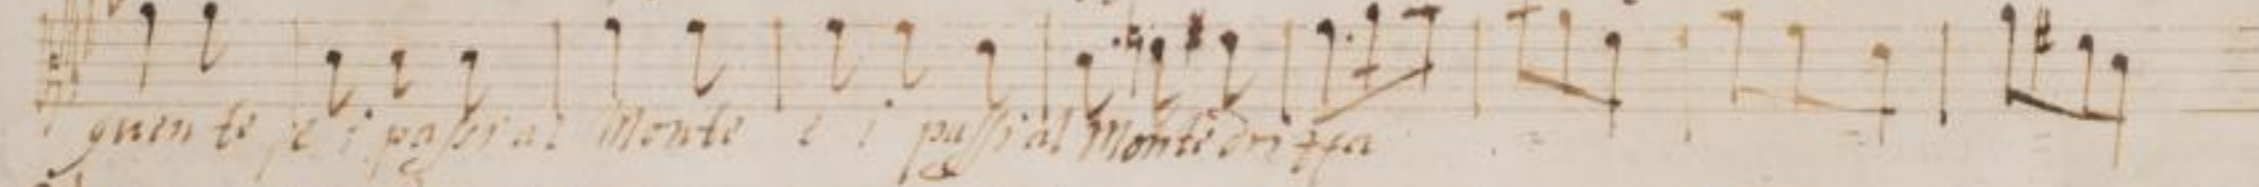 guente e i passi al Monte e i passi al Monte drizza